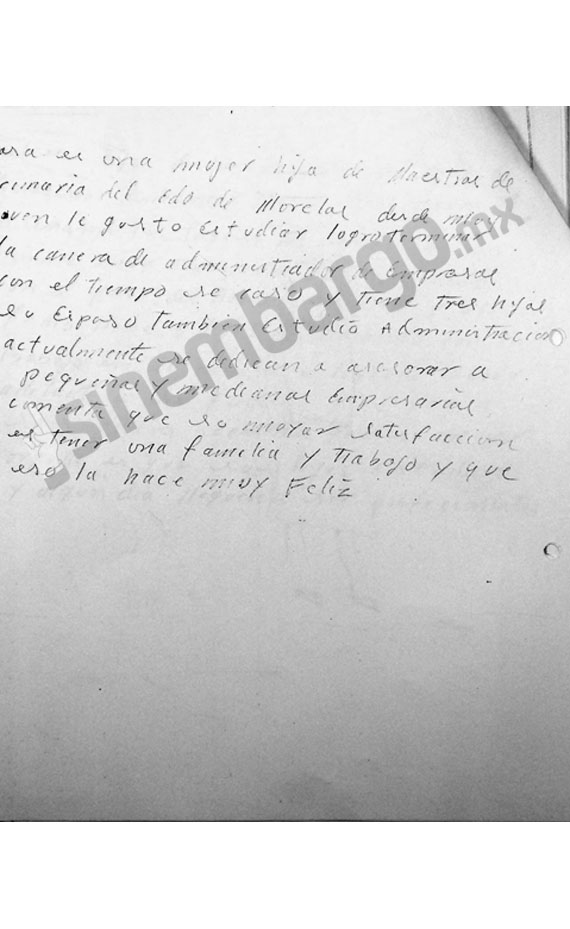 ara es una mujer hija de Maestros de
rimaria del Edo de Morelos desde muy
oven le gusto Estudiar logro terminar
la carrera de administrador de Empresas
con el tiempo se caso y tiene tres hijos
su Esposo Tambien Estudio Administracion
actualmente se dedican a asesorar a
pequeñas y medianas Empresarias
comenta que su mayor satisfaccion
es tener una familia y trabajo y que
eso la hace muy Feliz
sinembargo.mx